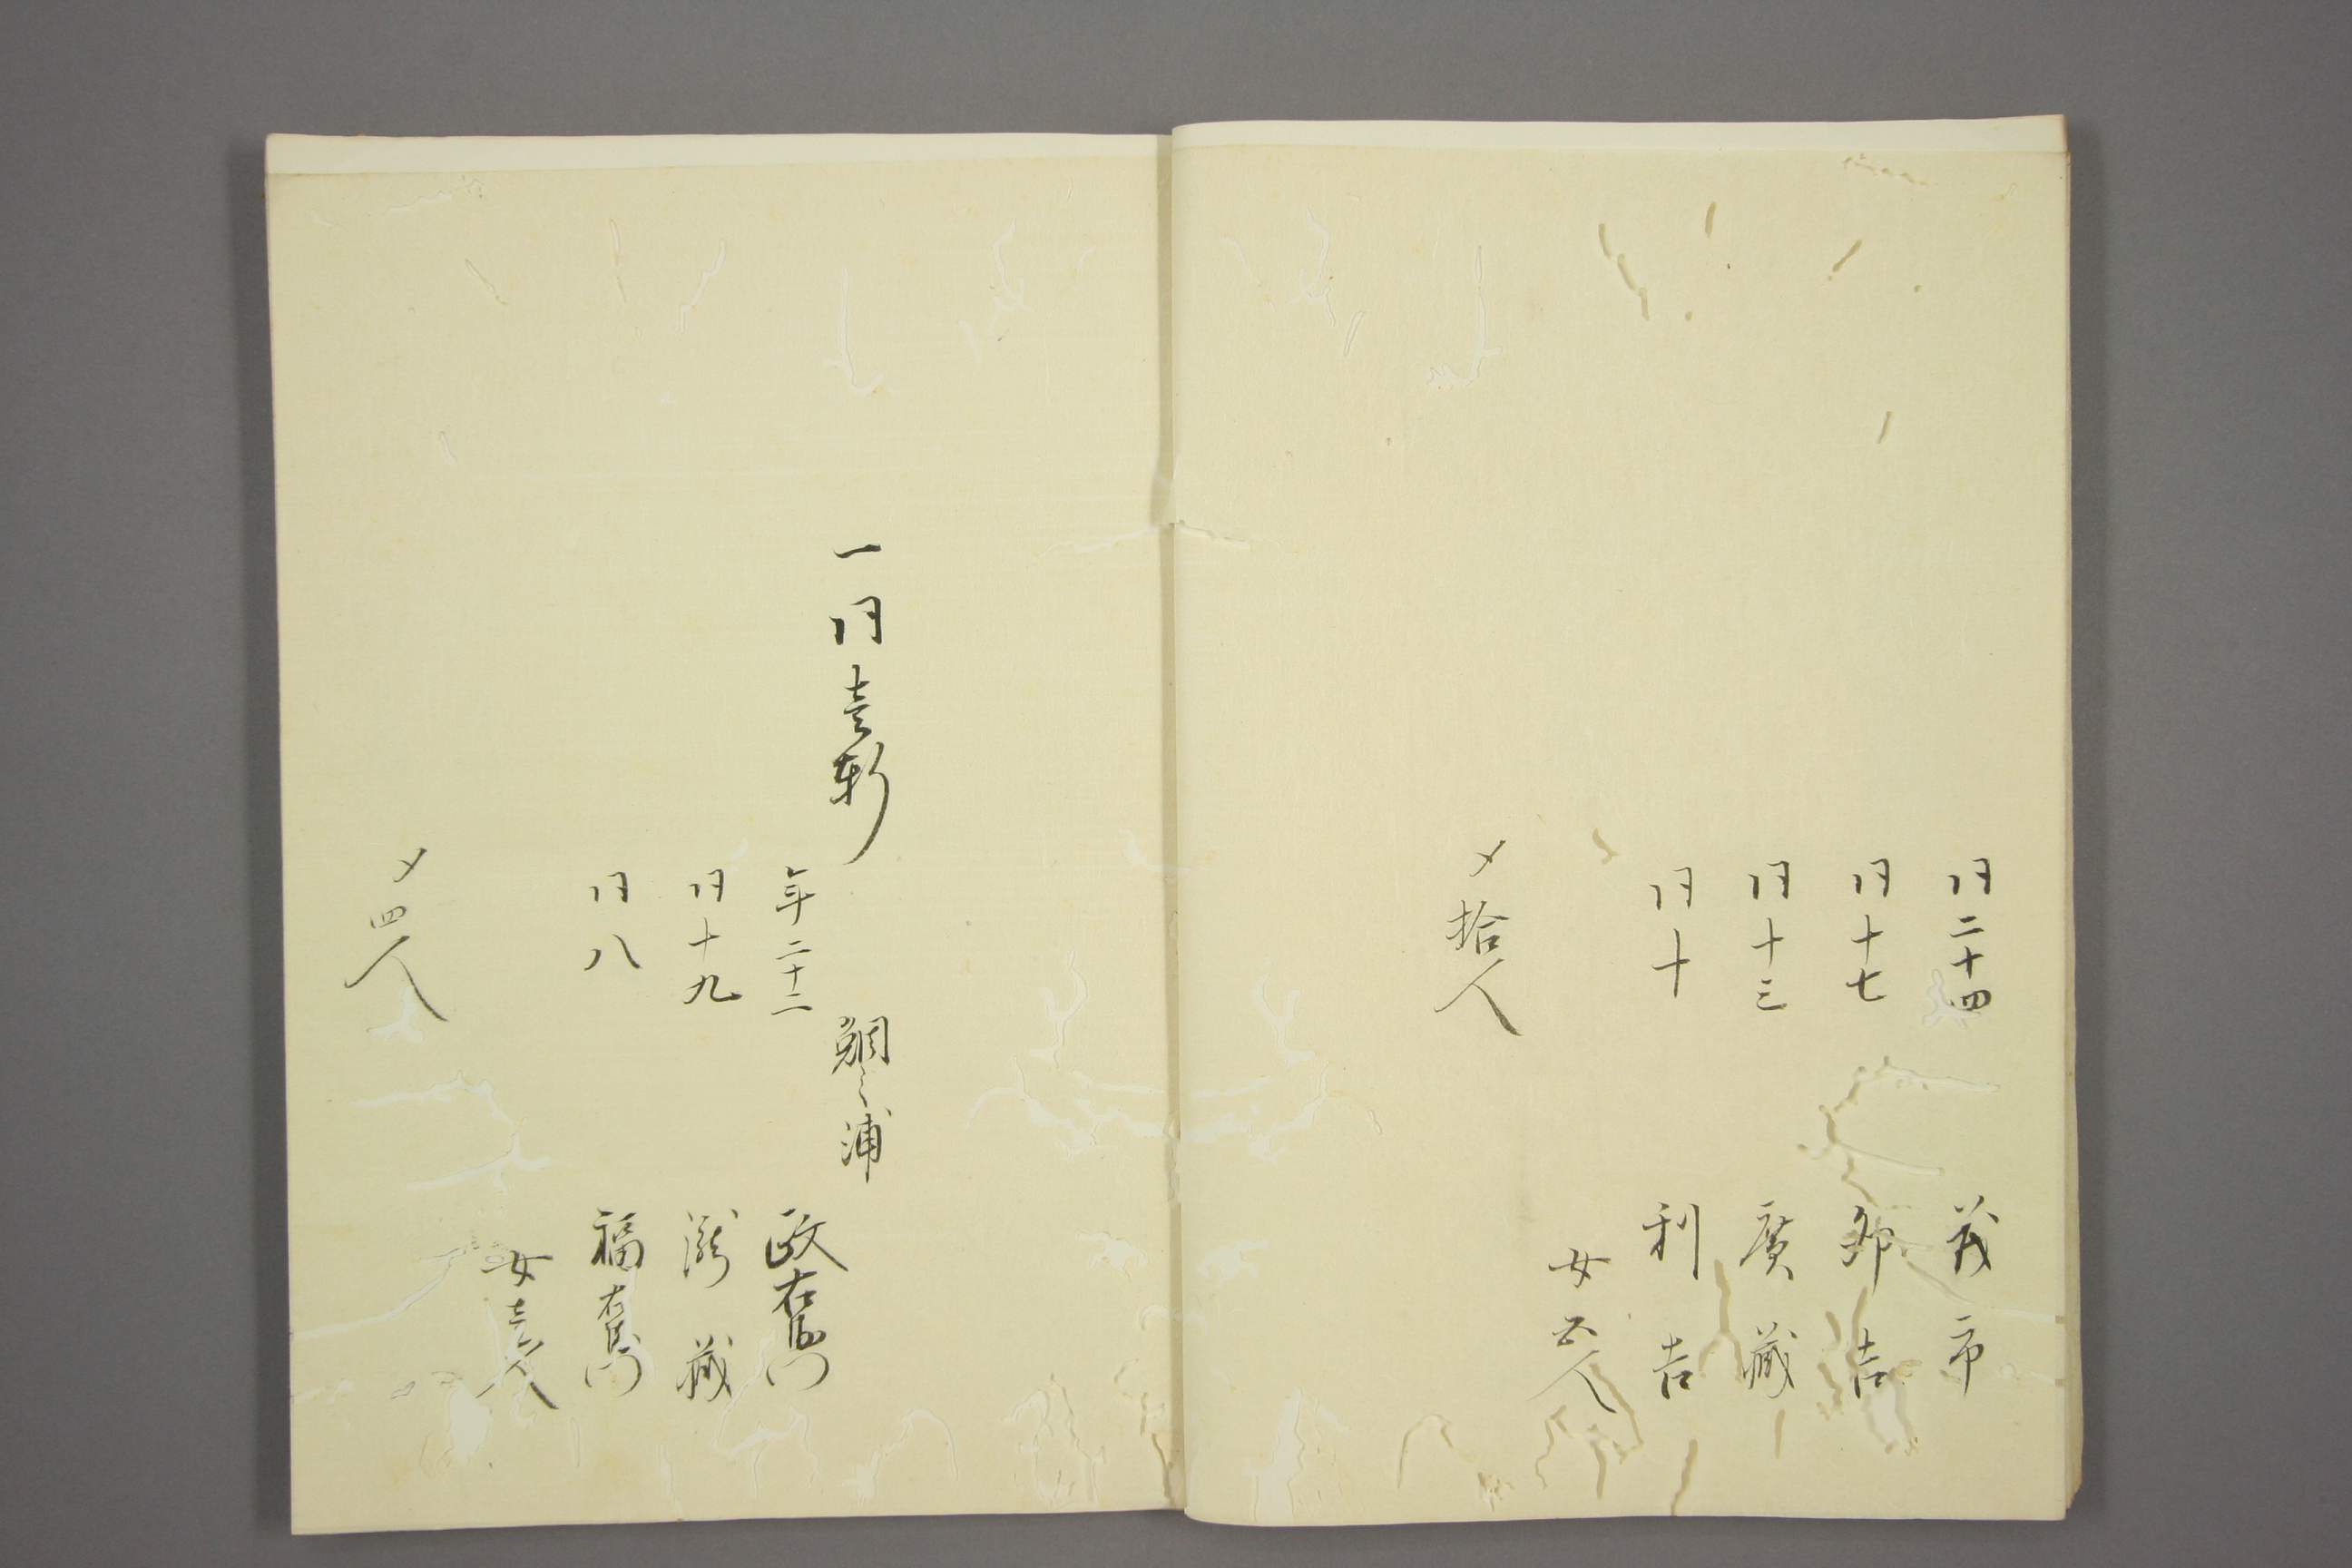 同二十四 茂市
同十七 卯吉
同十三 廣藏
同十 利吉
女五人
〆拾人
一同壱軒
鯛之浦
年二十二 政右衛門
同十九 瀧藏
同八 福右衛門
女壱人
〆四人